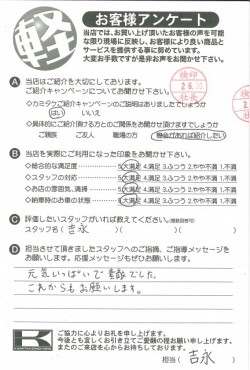 軽
お客様アンケート
当店では、お買い上げ頂いたお客様の声を可能
な限り現場に反映し、お客様により良い商品と
サービスを提供する事に努めています。
大変お手数ですが是非お声をお聞かせ下さい。
検印
A 当店はご紹介を大切にしております。
ご紹介キャンペーンについてお聞かせ下さい。
◇カミタケご紹介キャンペーンのご説明はありましたでしょうか
はい いいえ
◇具体的にご紹介頂ける方とのご関係をお聞かせ頂けますでしょうか
ご親族 ご友人 職場の方 機会があれば紹介したい
B 当店を実際にご利用になった印象をお聞かせ下さい。
◇総合的な満足度 5.大満足 4.満足 3.ふつう 2.やや不満 1.不満
◇スタッフの対応 5.大満足 4.満足 3.ふつう 2.やや不満 1.不満
◇お店の雰囲気、清掃 5.大満足 4.満足 3.ふつう 2.やや不満 1.不満
◇納車時のお車の状態 5.大満足 4.満足 3.ふつう 2.やや不満 1.不満
C 評価したいスタッフがいれば教えてください。(複数回答可)
スタッフ名( 吉永 )( )( )
D 担当させて頂きましたスタッフへのご指摘、ご指導メッセージを
お願いします。応援メッセージもぜひお願いします。
元気いっぱいで素敵でした。
これからもお願いします。
K
ご協力に心よりお礼を申し上げます。
今後とも宜しくお引き立てご愛顧の程お願い申し上げます。
またのご来店を心からお待ちしております。
担当( 吉永 )